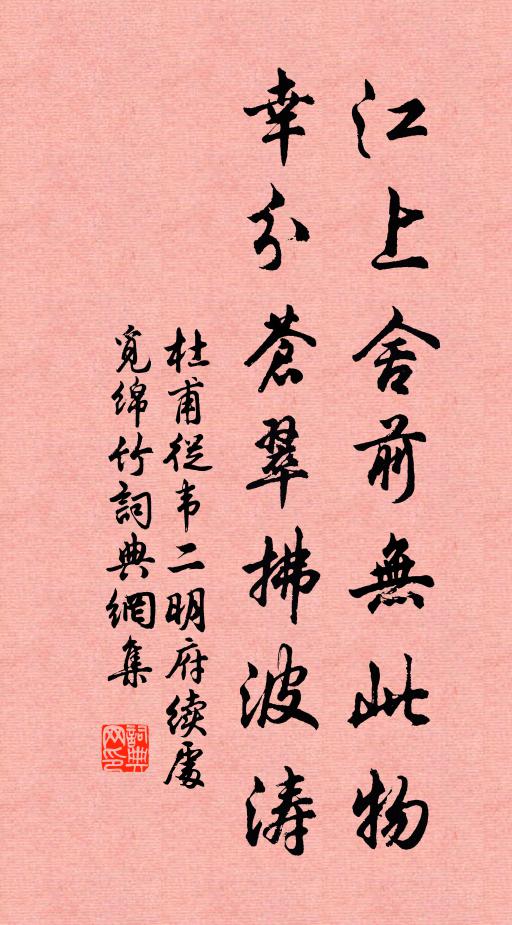 江上舍前無此物
幸分蒼翠拂波濤
杜甫從韦二明府續處
覓绵竹詞典網集
詞典
网印